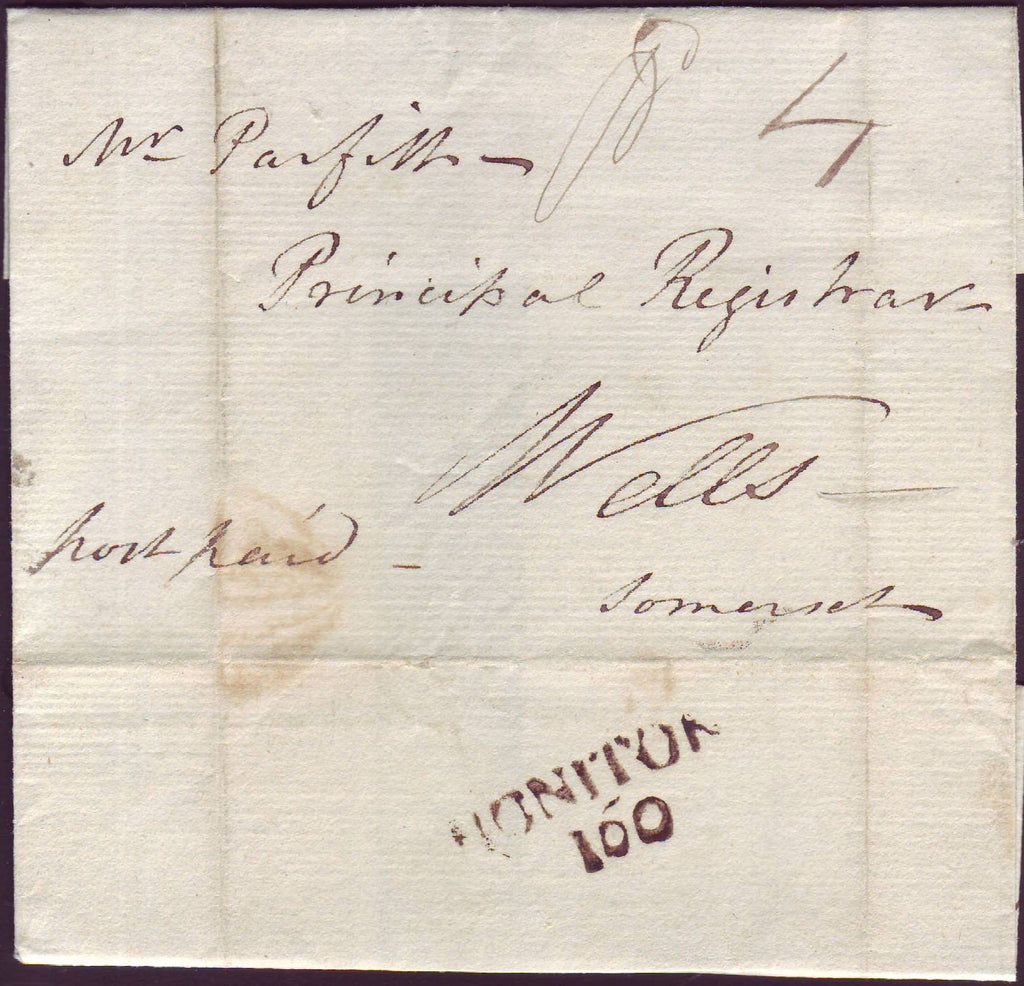 pd 4
Mr Parfitt
Principal Registrar
Wells
post paid
Somerset
HONITON
160